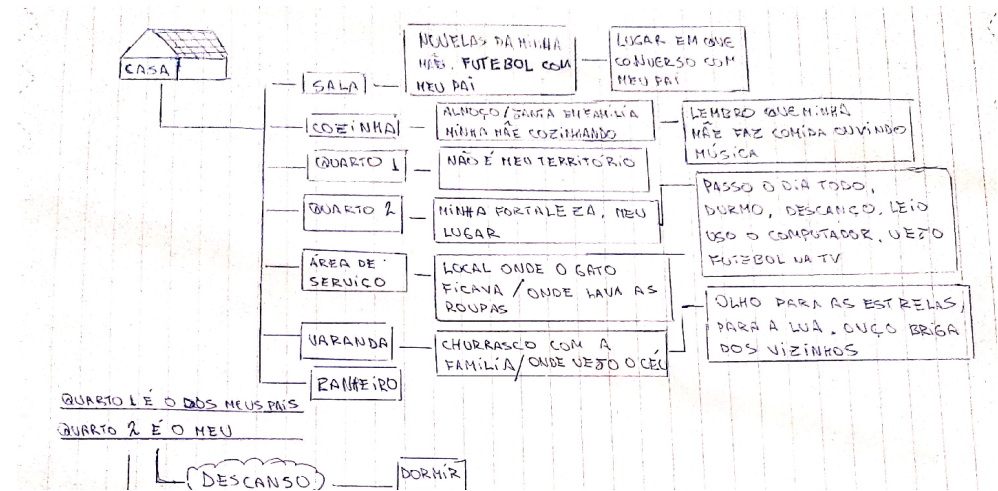 CASA
SALA
NOVELAS DA MINHA
MÃE. FUTEBOL COM
MEU PAI
LUGAR EM QUE
CONVERSO COM
MEU PAI
COZINHA
ALMOÇO/JANTA EM FAMÍLIA
MINHA MÃE COZINHANDO
LEMBRO QUE MINHA
MÃE FAZ COMIDA OUVINDO
MÚSICA
QUARTO 1
NÃO É MEU TERRITÓRIO
QUARTO 2
MINHA FORTALEZA, MEU
LUGAR
PASSO O DIA TODO,
DURMO, DESCANÇO, LEIO
USO O COMPUTADOR, VEJO
FUTEBOL NA TV
ÁREA DE
SERVIÇO
LOCAL ONDE O GATO
FICAVA / ONDE LAVA AS
ROUPAS
VARANDA
CHURRASCO COM A
FAMÍLIA/ONDE VEJO O CÉU
OLHO PARA AS ESTRELAS,
PARA A LUA. OUÇO BRIGA
DOS VIZINHOS
BANHEIRO
QUARTO 1 É O DOS MEUS PAIS
QUARTO 2 É O MEU
DESCANSO
DORMIR